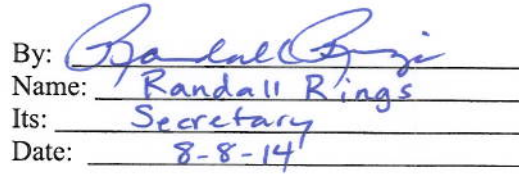 By: Randall Rings
Name: Randall Rings
Its: Secretary
Date: 8-8-14